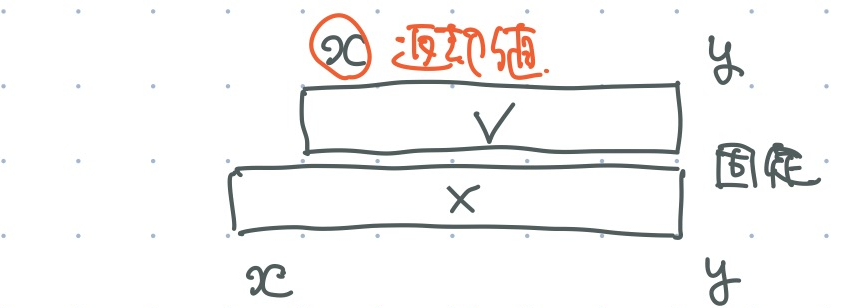 x 返却値. y
✓
固定
×
x y